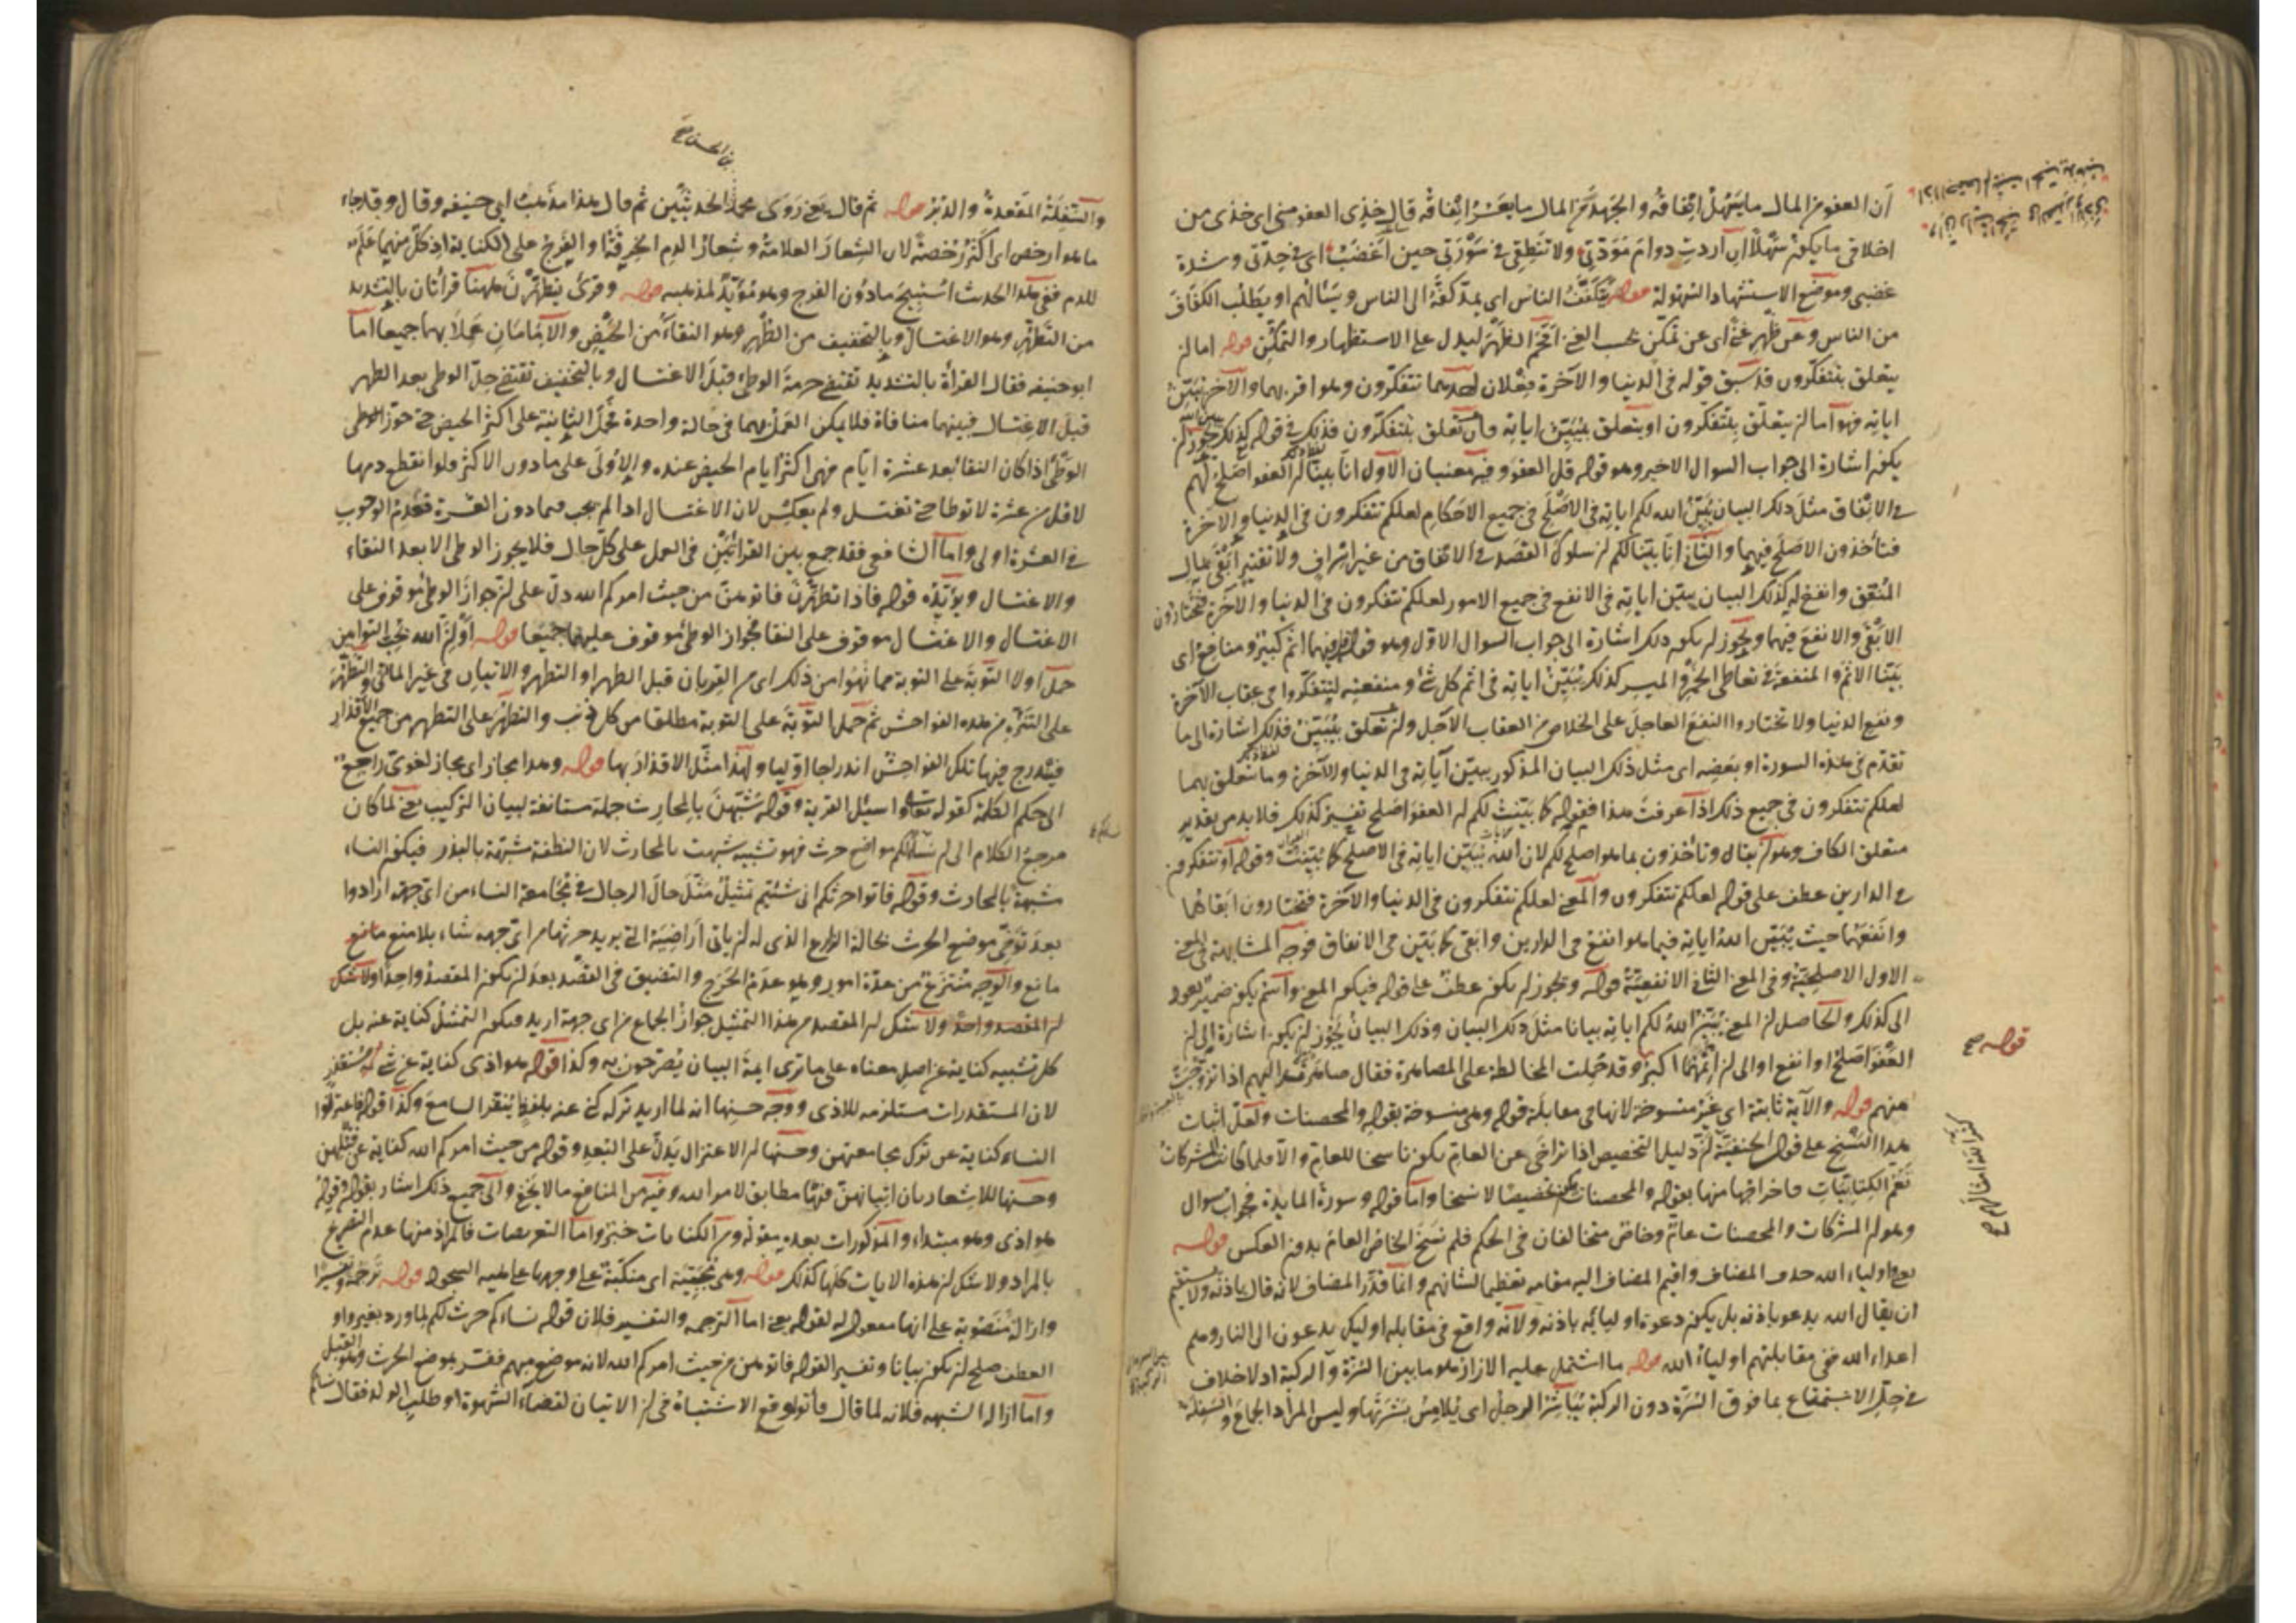 أن العفو من المال ما يسهل انفاقه والجهد من المال ما يعسر انفاقه قال خذى العفو منى اى خذى من
اخلاقى ما يكون سهلا ان أردت دوام مودتى ولا تنطقى فى سورتى حين أغضب اى فى حدتى وشدة
غضبى وموضع الاستشهاد السهولة قوله يتكفف الناس اى يمد كفه الى الناس ويسألهم او يطلب الكفاف
من الناس وعن ظهر غنى اى عن تمكن بحسب الغنى اقحم الظهر ليدل على الاستظهار والتمكن قوله اما ان
يتعلق بتتفكرون قد سبق قوله فى الدنيا والآخرة فعلان احدهما تتفكرون وهو اقربهما والآخر يبين
اياته فهو اما ان يتعلق بتتفكرون او يتعلق بيبين اياته فان تعلق بتتفكرون فذلك فى قوله كذلك يجوز ان
يكون اشارة الى جواب السوال الاخير وهو قوله قل العفو وفيه معنيان الاول انا بينا ان العفو اصلح لهم
فى الانفاق مثل ذلك البيان يبين الله لكم اياته فى الاصلح فى جميع الاحكام لعلكم تتفكرون فى الدنيا والآخرة
فتأخذون الاصلح فيهما والثانى انا بينا لكم ان سلوك القصد فى الانفاق من غير اسراف ولا تقتير ابقى لمال
المنفق وانفع له كذلك البيان يبين اياته فى الانفع فى جميع الامور لعلكم تتفكرون فى الدنيا والآخرة فتختارون
الابقى والانفع فيهما ويجوز ان يكون ذلك اشارة الى جواب السوال الاول وهو قوله قل فيهما اثم كبير ومنافع اى
بينا الاثم والمنفعة فى تعاطى الخمر والميسر كذلك يبين اياته فى اثم كل شئ ومنفعته ليتفكروا فى عقاب الآخرة
ونفع الدنيا ولا تختاروا النفع العاجل على الخلاص من العقاب الآجل وان تعلق بيبين فذلك اشارة الى ما
تقدم فى هذه السورة او بعضه اى مثل ذلك البيان المذكور يبين آياته فى الدنيا والآخرة وما يتعلق بهما
لعلكم تتفكرون فى جميع ذلك اذا عرفت هذا فقوله كما بينت لكم ان العفو اصلح تفسير كذلك فلا بد من تقدير
متعلق الكاف وهو ان يقال وتأخذون بما هو اصلح لكم لان الله يبين اياته فى الاصلح كما بينت وقوله او تتفكرون
فى الدارين عطف على قوله لعلكم تتفكرون والمعنى لعلكم تتفكرون فى الدنيا والآخرة فتختارون ابقاهما
وانفعهما حيث يبين الله اياته فيما هو انفع فى الدارين وابقى كما بين فى الانفاق فوجه المشابهة فى المعنى
الاول الاصلحية وفى المعنى الثانى الانفعية قوله ويجوز ان يكون عطف على قوله فيكون المعنى واسم يكون ضمير يعود
الى كذلك والحاصل ان المعنى يبين الله لكم اياته بيانا مثل ذلك البيان وذلك البيان يجوز ان يكون اشارة الى ان
العفو اصلح او انفع او الى ان اثمهما اكبر وقد حملت المخالطة على المصاهرة فقال صاهر اليهم اذا تزوجت
منهم قوله والآية ثابتة اى غير منسوخة لانها فى مقابلة قوله وهى منسوخة بقوله والمحصنات ولعل اثبات
هذا النسخ على قول الحنفية ان دليل التخصيص اذا تراخى عن العام يكون ناسخا للعام والا فلما كانت المشركات
تعم الكتابيات فاخراجها منها بقوله والمحصنات يكون تخصيصا لا نسخا واما قوله وسورة المايدة فجواب سوال
وهو ان المشركات والمحصنات عام وخاص متخالفان فى الحكم فلم نسخ الخاص العام بدون العكس قوله
يعنى اولياء الله حذف المضاف واقيم المضاف اليه مقامه تعظيما لشانهم وانما قدر المضاف لانه قال باذنه ولا يستقيم
ان يقال الله يدعو باذنه بل يكون دعوة اوليائه باذنه ولانه واقع فى مقابلة اوليك يدعون الى النار وهم
اعداء الله ففى مقابلتهم اولياء الله قوله ما اشتمل عليه الازار هو ما بين السرة والركبة اذ لا خلاف
فى حل الاستمتاع بما فوق السرة ودون الركبة يباشر الرجل اى يلامس بشرتها وليس المراد الجماع والسفلة
قوله صح
والسفلة المقعدة والدبر قوله ثم قال يعنى روى محمد الحديثين ثم قال هذا مذهب ابى حنيفه وقال وقد جاء
ما هو ارخص اى اكثر رخصة لان الشعار العلامة وشعار الدم الخرقة او الفرج على الكناية اذ كل منهما علم
للدم ففى هذا الحديث استبيح ما دون الفرج وهو مؤيد لمذهبه قوله وقرئ يطهرن ههنا قرأتان بالتشديد
من التطهر وهو الاغتسال وبالتخفيف من الطهر وهو النقاء من الحيض والامامان عملا بهما جميعا اما
ابو حنيفه فقال القرأة بالتشديد تقتضى حرمة الوطى قبل الاغتسال وبالتخفيف تقتضى حل الوطى بعد الطهر
قبل الاغتسال فبينهما منافاة فلا يمكن العمل بهما فى حالة واحدة فحمل الثانية على اكثر الحيض حتى جوز الوطى
الوطئ اذا كان النقا بعد عشرة ايام فهى اكثر ايام الحيض عنده والاولى على ما دون الاكثر فلو انقطع دمها
لاقل من عشرة لا توطا حتى تغتسل ولم يعكس لان الاغتسال اذا لم يجب فيما دون العشرة فعدم الوجوب
فى العشرة اولى واما الشافعى فقد جمع بين القرائتين فى العمل على كل حال فلا يجوز الوطى الا بعد النقاء
والاغتسال ويؤيده قوله فاذا تطهرن فاتوهن من حيث امركم الله دل على ان جواز الوطى موقوف على
الاغتسال والاغتسال موقوف على النقا فجواز الوطى موقوف عليهما جميعا قوله ان الله يحب التوابين
حمل اولا التوبة على التوبة مما نهوا من ذلك اى من القربان قبل الطهر او التطهر والاتيان فى غير الماتى والتطهر
على التنزه من هذه الفواحش ثم حمل التوبة على التوبة مطلقا من كل ذنب والتطهر على التطهر من جميع الاقذار
فيندرج فيها تلك الفواحش اندراجا اوليا ولهذا مثل الاقذار بها قوله وهذا مجاز اى مجاز لغوى راجع
الى حكم الكلمة كقوله تعالى واسئل القرية وقوله شبهن بالمحارث جملة مستانفة لبيان التركيب يعنى لما كان
مرجع الكلام الى ان نساءكم مواضع حرث فهو تشبيه شبهت بالمحارث لان النطفة مشبهة بالبذر فيكون النساء
شبهة بالمحارث وقوله فاتوا حرثكم انى شئتم تمثيل مثل حال الرجال فى مجامعة النساء من اى جهة ارادوا
بعد توخى موضع الحرث بحالة الزارع الذى له ان ياتى اراضيه التى يريد حرثها من اى جهة شاء بلا منع مانع
مانع والوجه منتزع من عدة امور وهو عدم الحرج والتضييق فى القصد بعد ان يكون المقصد واحدا ولا شك
ان المقصد واحد ولا شك ان المقصد من هذا التمثيل جواز الجماع من اى جهة اريد فيكون التمثيل كناية عنه بل
كل تشبيه كناية عن اصل معناه على ما ترى ايمة البيان يصرحون به وكذا قوله هو اذى كناية عن شئ مستقذر
لان المستقذرات مستلزمه للاذى ووجه حسنها انه لما اريد تركه كنى عنه بلفظ ينفر السامع وكذا قوله فاعتزلوا
النساء كناية عن ترك مجامعتهن وحسنها ان الاعتزال يدل على البعد وقوله من حيث امركم الله كناية عن قبلهن
وحسنها للاشعار بان اتيانهن منها مطابق لامر الله وفيه من المنافع ما لا يخفى والى جميع ذلك اشار بقوله وقوله
هو اذى وهو مبتداء والمذكورات بعده مقوله ومن الكنايات خبر واما التعريضات فالمراد منها عدم التصريح
بالمراد ولا شك ان هذه الايات كلها كذلك قوله وهى مجبية اى منكبة على وجهها على هيه السجود قوله ترجمة وتفسيرا
وازالة منصوبة على انها مفعول له لقوله يعنى اما الترجمه والتفسير فلان قوله نساءكم حرث لكم لما ورد بغير واو
العطف صلح ان يكون بيانا وتفسيرا لقوله فاتوهن من حيث امركم الله لانه موضع مبهم ففسر بموضع الحرث وهو القبل
واما ازالة الشبهه فلانه لما قال فاتوا وقع الاشتباه فى ان الاتيان لقضاء الشهوة او طلب الولد فقال